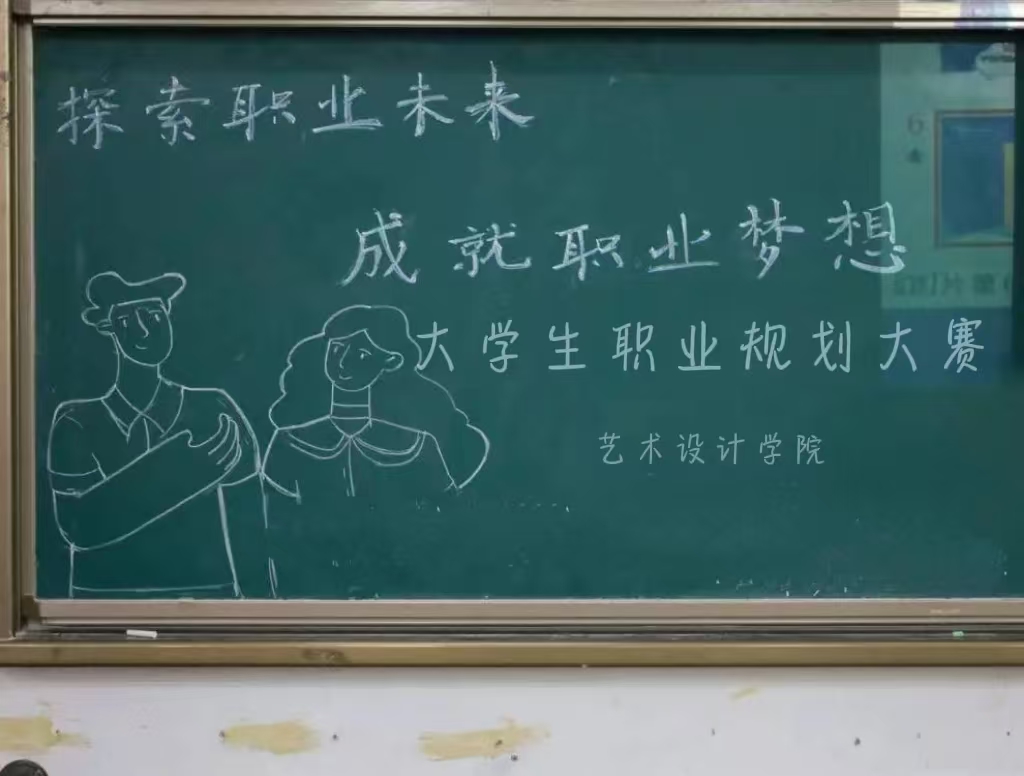 探索职业未来
成就职业梦想
大学生职业规划大赛
艺术设计学院